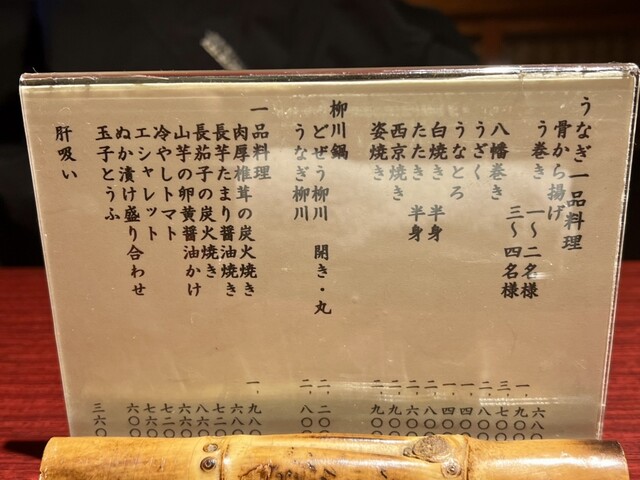 うなぎ一品料理
骨から揚げ 六八〇
う巻き 一～二名様 一、九〇〇
三～四名様 三、七〇〇
八幡巻き 二、八〇〇
うざく 一、四〇〇
うなとろ 一、四〇〇
白焼き 半身 二、八〇〇
たたき 半身 二、六〇〇
西京焼き 二、九〇〇
姿焼き 二、九〇〇
柳川鍋
どぜう柳川 開き・丸 二、二〇〇
うなぎ柳川 二、八〇〇
一品料理
肉厚椎茸の炭火焼き 一、九八〇
長芋たまり醤油焼き 六八〇
長茄子の炭火焼き 七二〇
山芋の卵黄醤油かけ 八六〇
冷やしトマト 六六〇
エシャレット 七二〇
ぬか漬け盛り合わせ 七六〇
玉子とうふ 六〇〇
肝吸い 三六〇